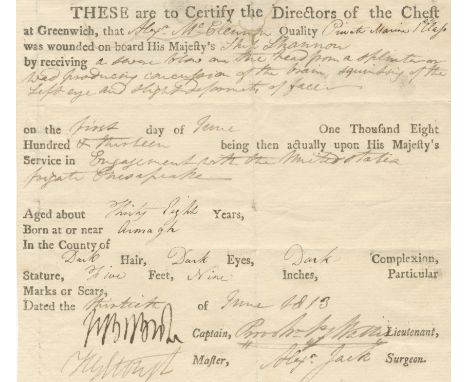 THESE are to Certify the Directors of the Chest
at Greenwich, that Alexr. Mc Quality Private Marine
was wounded on board His Majesty's Ship Shannon
by receiving a severe blow on the head from a splinter or
producing concussion of the brain, squinting of the
Left eye and slight deformity of face
on the first day of June One Thousand Eight
Hundred & thirteen being then actually upon His Majesty's
Service in Engagement with the United States
frigate Chesapeake
Aged about Thirty Eight Years,
Born at or near Armagh
In the County of
Dark Hair, Dark Eyes, Dark Complexion,
Stature, Five Feet, Nine Inches, Particular
Marks or Scars,
Dated the thirtieth of June 1813
Captain, Lieutenant,
Master, Alexr. Jack Surgeon.